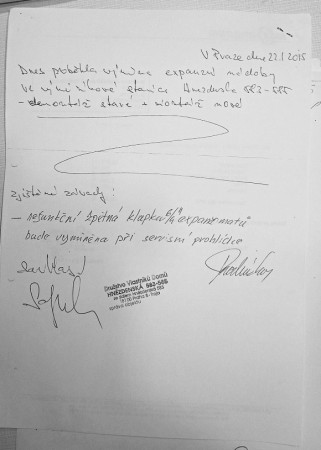 V Praze dne 22.1.2015
Dnes proběhla výměna expanzní nádoby
ve výměníkové stanici Hnězdenska 583-585
- demontáž staré + montáž nové
zjištěné závady:
- nefunkční zpětná klapka expanzomatů
bude vyměněna při servisní prohlídce
Družstvo Vlastníků Domů
HNĚZDENSKÁ 583-585
181 00 Praha 8 - Troja